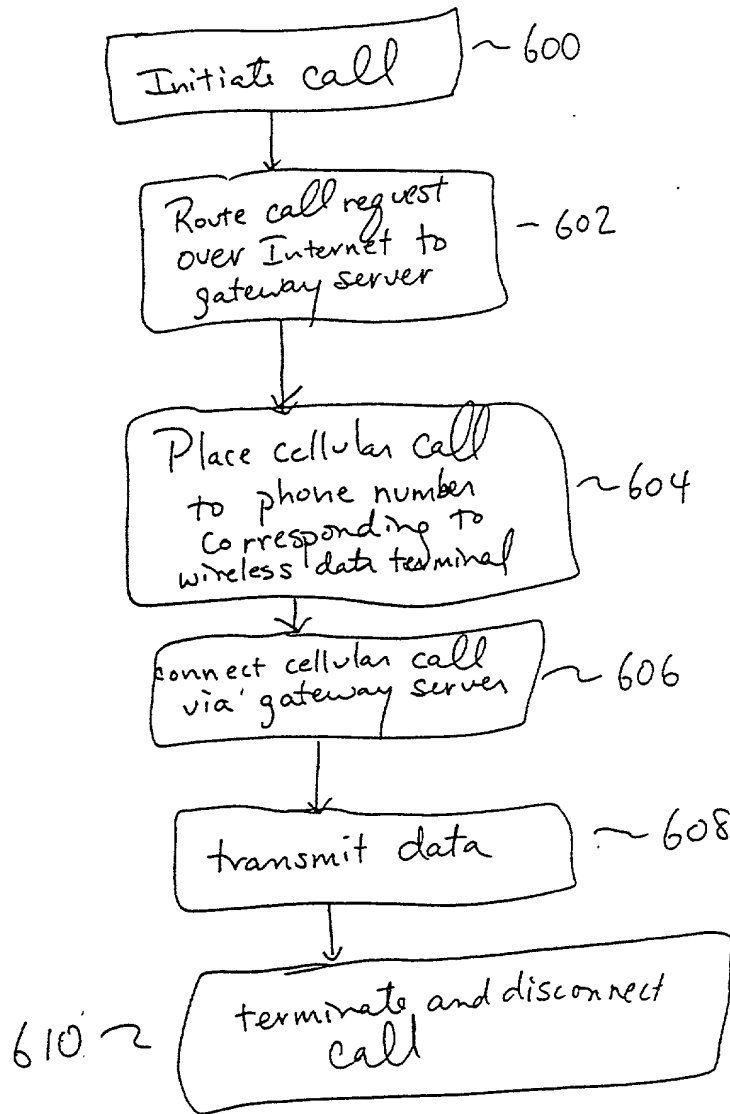 Initiate call
~ 600
Route call request
over Internet to
gateway server
~ 602
Place cellular call
to phone number
corresponding to
wireless data terminal
~ 604
connect cellular call
via gateway server
~ 606
transmit data
~ 608
terminate and disconnect
call
610 ~